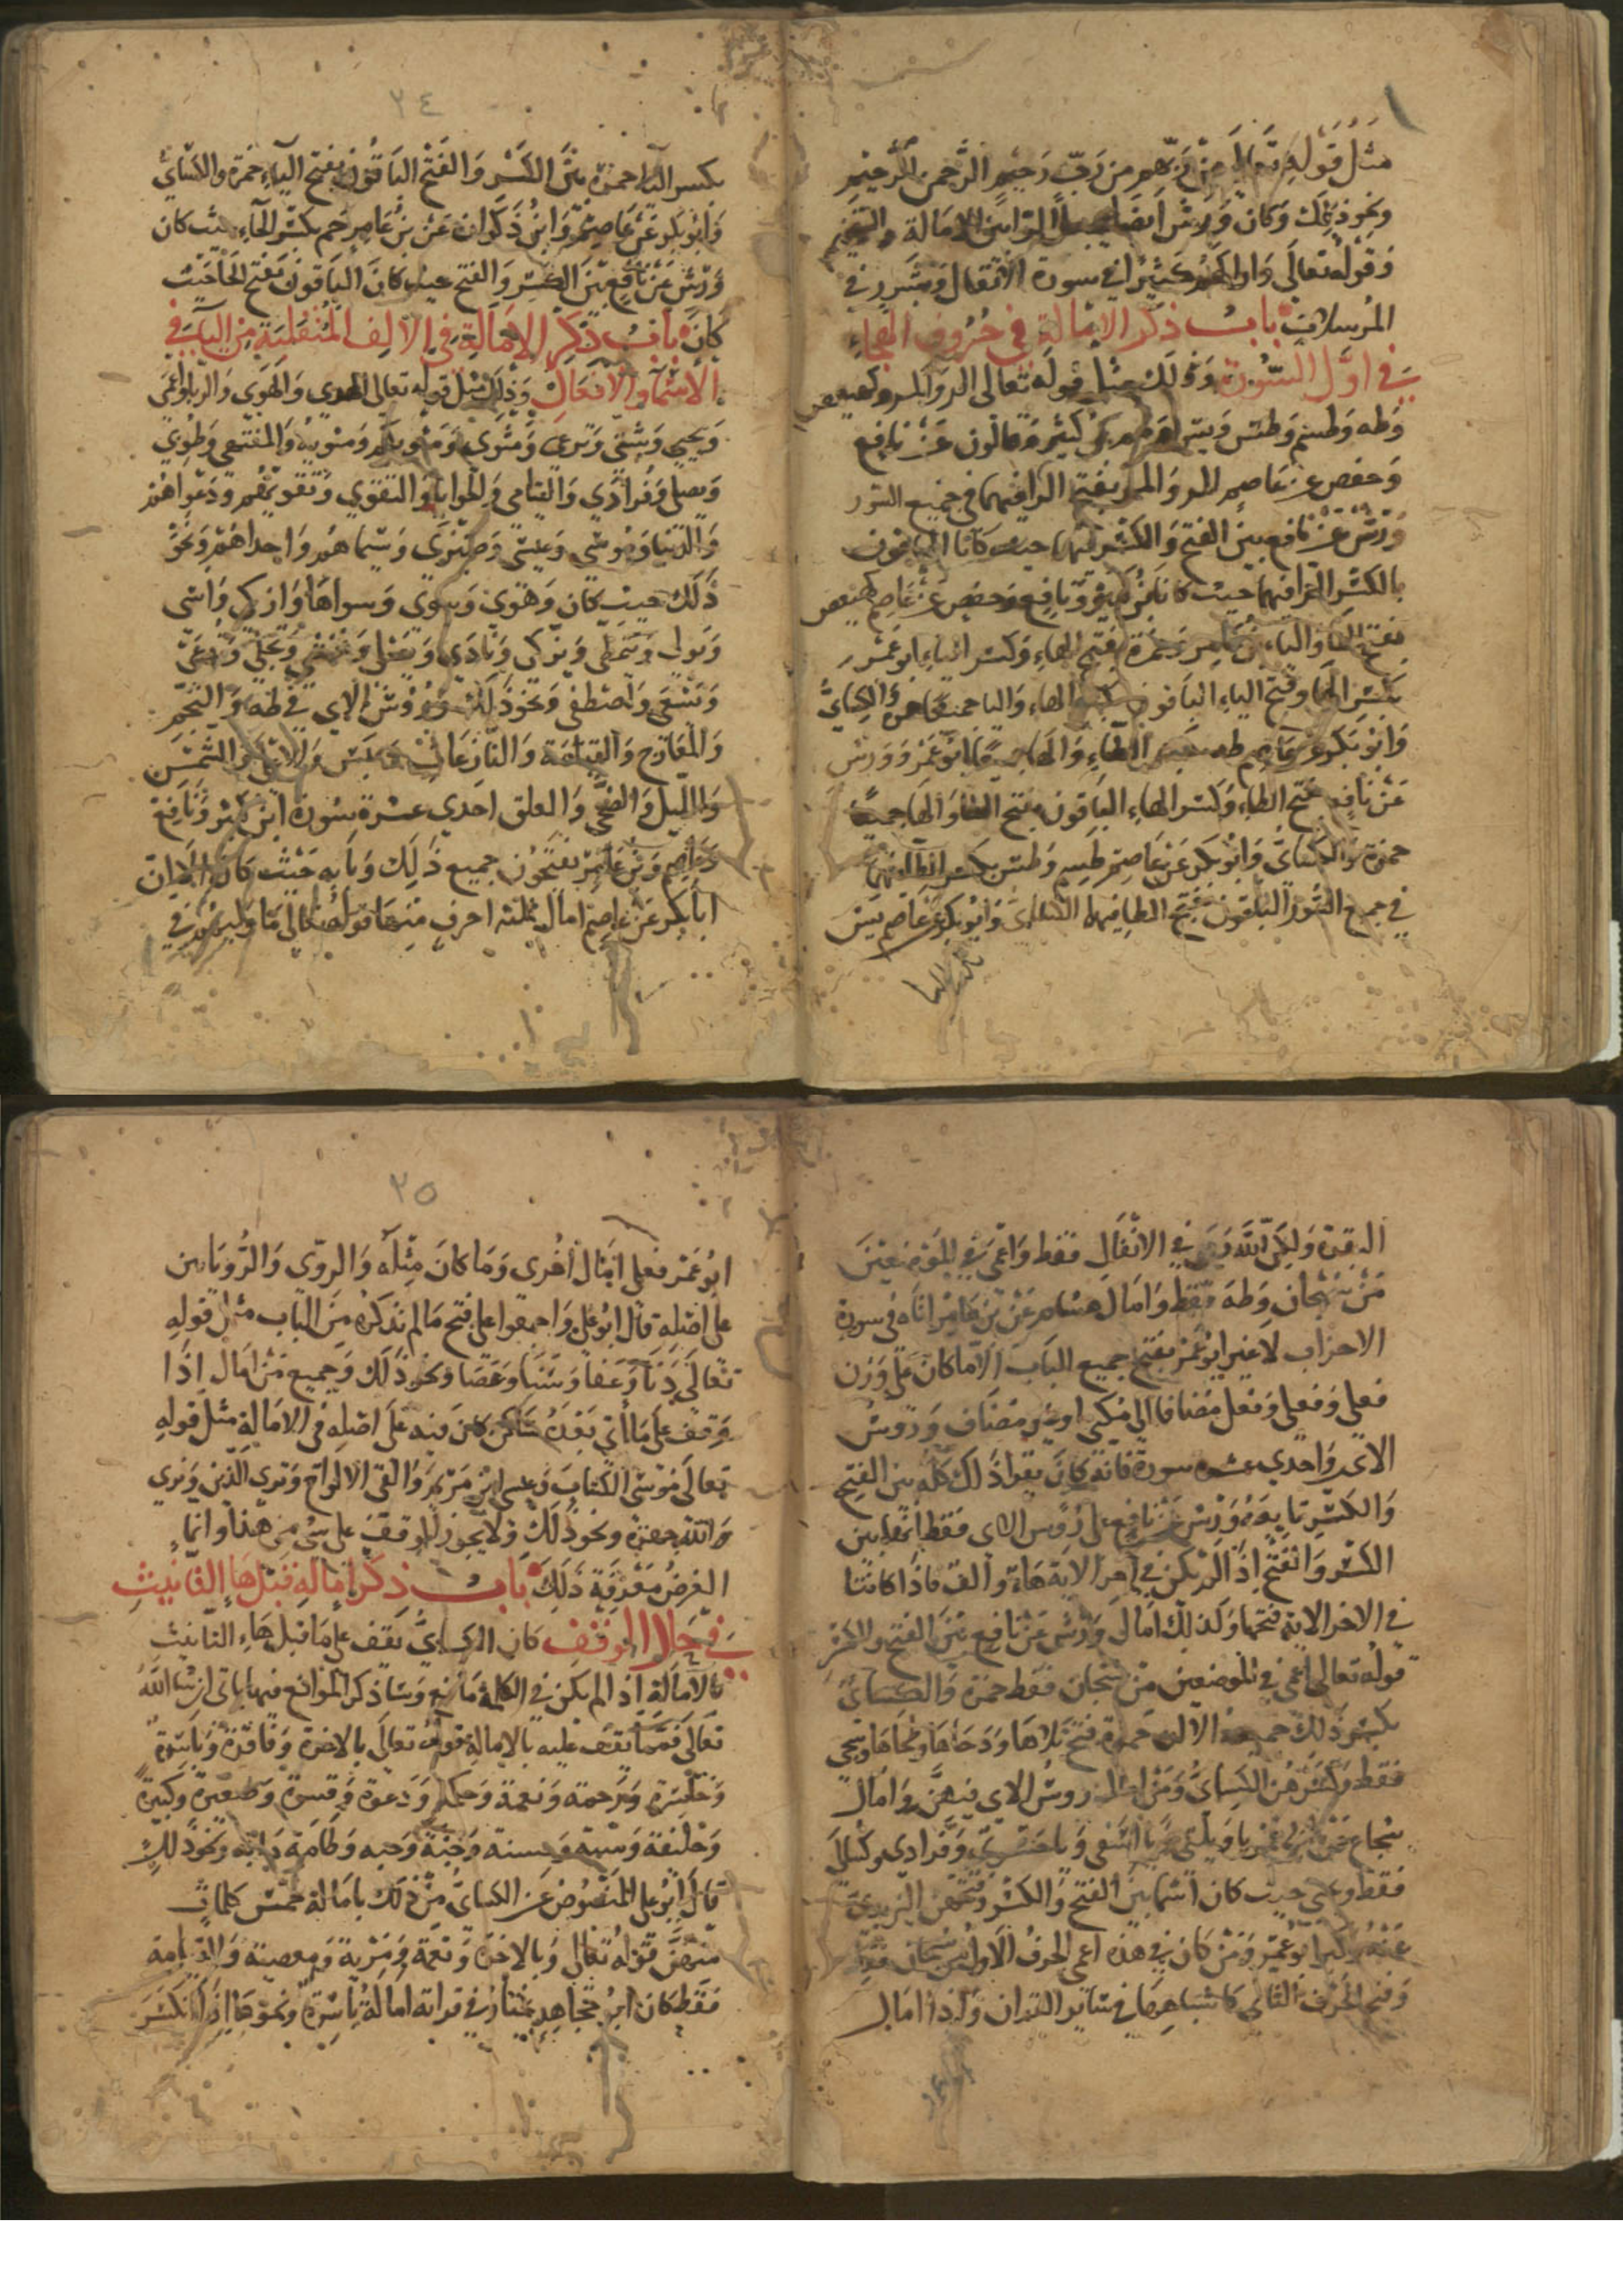 مثل قوله تعالى من ربهم من رب رحيم الرحمن الرحيم
ونحو ذلك وكان ورش أيضا الراء بين الامالة والتفخيم
في قوله تعالى ولو اراكهم كثيرا في سورة الانفال وبشرر في
المرسلات باب ذكر الامالة في حروف الهجاء
في اول السورة وذلك مثل قوله تعالى الر والمر وكهيعص
وطه وطسم وطس ويس وحم بن كثير وقالون عن نافع
وحفص عن عاصم الر والمر بفتح الرا فيهما في جميع السور
ورش عن نافع بين الفتح والكسر فيهما حيث كانا الباقون
بالكسر الرا فيهما حيث كانا بن كثير ونافع وحفص عن عاصم كهيعص
بفتح الها والياء بن عامر وحمزة بفتح الهاء وكسر الياء ابو عمرو
بكسر الها وفتح الياء الباقون بكسر الهاء واليا جميعا حمزة والكسائي
وابو بكر عن عاصم طه بكسر الطاء والهاء جميعا ابو عمرو وورش
عن نافع بفتح الطاء وكسر الهاء الباقون بفتح الطا والها جميعا
حمزة والكسائي وابو بكر عن عاصم طسم وطس بكسر الطا فيهما
في جميع السور الباقون بفتح الطا فيها الكسائي وابو بكر عن عاصم يس
بكسر اليا
٢٤
بكسر اليا حمزة بين الكسر والفتح الباقون بفتح الياء حمزة والكسائي
وابو بكر عن عاصم وابن ذكوان عن بن عامر حم بكسر الحاء حيث كان
ورش عن نافع بين الكسر والفتح حيث كان الباقون بفتح الحا حيث
كان باب ذكر الامالة في الالف المنقلبة من الياء في
الاسماء والافعال وذلك مثل قوله تعالى الهدى والهوى والربا واعمى
ويحيى وشتى وترعى ومثوى ومثويكم ومثويه والمنتهى وطوى
ويصلى وفرادى واليتامى والحوايا والتقوى وتقويهم ودعواهم
والدنيا وموسى وعيسى وضيزى وسيماهم واحداهما ونحو
ذلك حيث كان وهوى وسوى وسواها وازكى واتى
وتولى ويتمطى ويزكى ونادى ويغشى وتجلى وتدعى
وتسقى واصطفى ونحو ذلك ورؤوس الاي في طه والنجم
والمعارج والقيامة والنازعات وعبس والاعلى والشمس
والليل والضحى والعلق احدى عشرة سورة ابن كثير ونافع
وعاصم وبن عامر يفتحون جميع ذلك وبابه حيث كان الا ان
ابا بكر عن عاصم امال ثلثة احرف منها قوله تعالى ما وليهم في
البقرة ولكن الله رمى في الانفال فقط واعمى في الموضعين
من سبحان وطه فقط وامال هشام عن بن عامر اناه في سورة
الاحزاب لا غير ابو عمرو بفتح جميع الباب الا ما كان على وزن
فعلى وفعلى وفعلى مضافا الى مكنى او غير مضاف ورؤس
الاي واحدى عشرة سورة فانه كان يقرا ذلك كله بين الفتح
والكسر تابعه ورش عن نافع على رؤس الاى فقط فقرا بين
الكسر والفتح اذا لم يكن في اخر الاية هاء والف فاذا كانتا
في الاخر الاية فتحها وكذلك امالى ورش عن نافع بين الفتح والكسر
قوله تعالى اعمى في الموضعين من سبحان فقط حمزة والكسائي
بكسر ذلك جميعه الا ان حمزة فتح تلاها ودحاها وطحاها وسجى
فقط وكسرهن الكسائي ومن اصله رؤس الاي فيهن وامال
شجاع عن ابي عمرو يا ويلتى ويا اسفى ويا حسرتى وفرادى وكسالى
فقط وعسى حيث كان اسما بين الفتح والكسر وفتحهن اليزيدى
عنه وكسر ابو عمرو ومن كان في هذه اعمى الحرف الاول من سبحان فقط
وفتح الحرف الثاني كاشباههما في سائر القران واذا امال
٢٥
ابو عمرو فعلى امال اخرى وما كان مثله والروى والرؤيا بين
على اصله قال ابو علي واجمعوا على فتح ما لم نذكره من الباب مثل قوله
تعالى دنا وعفا وسنا وعصا ونحو ذلك وجميع من امال اذا
وقف على ما اتى بعده ساكن كان فيه على اصله في الامالة مثل قوله
تعالى موسى الكتاب وعيسى ابن مريم والقى الالواح وترى الذين ونرى
الله جهرة ونحو ذلك ولا يجوز الوقف على شى من هذا وانما
الغرض معرفة ذلك باب ذكر امالة قبل هاء التانيث
في حال الوقف كان الكسائي يقف على ما قبل هاء التانيث
بالامالة اذا لم يكن في الكلمة مانع وساذكر الموانع فيها ياتى ان شا الله
تعالى فمما تقف عليه بالامالة قوله تعالى بالاخرة وفاقرة وباسرة
وخاسرة ورحمة ونعمة وحكمة ودعوة وقسوة وصغيرة وكبيرة
وخليفة وسيئة وحسنة وجنة وحبة وطامة ودابة ونحو ذلك
قال ابو علي المنصوص عن الكسائي من ذلك بامالة خمس كلمات
منهن قوله تعالى وبالاخرة ونعمة ومرية ومعصية والقيامة
فقط كان ابن مجاهد يختار في قراته امالة باسرة ونحوها اذا انكسر